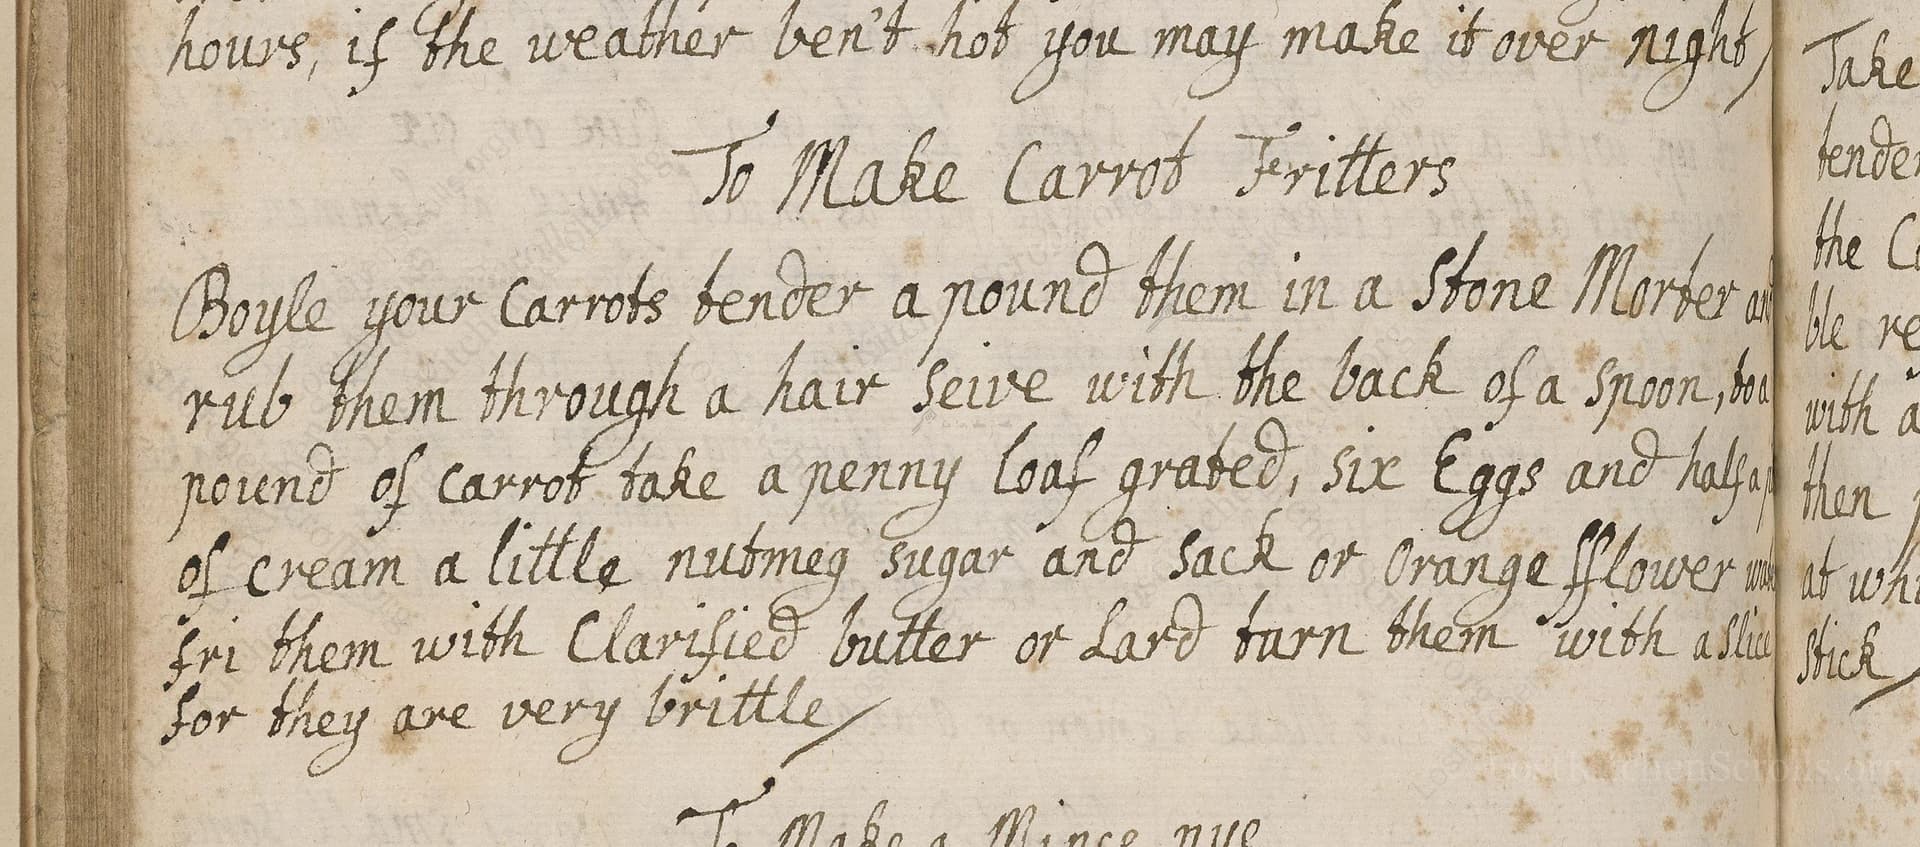 hours, if the weather ben't hot you may make it over night
To Make Carrot Fritters
Boyle your Carrots tender a pound them in a Stone Morter and
rub them through a hair Seive with the back of a spoon, to a
pound of carrot take a penny loaf grated, six Eggs and half a
of cream a little nutmeg sugar and sack or orange fflower
fri them with Clarified butter or Lard turn them with a slice
for they are very brittle
To Make a Mince pye
Take
tender
the
ble
with a
then
at
stick
LostKitchenScrolls.org